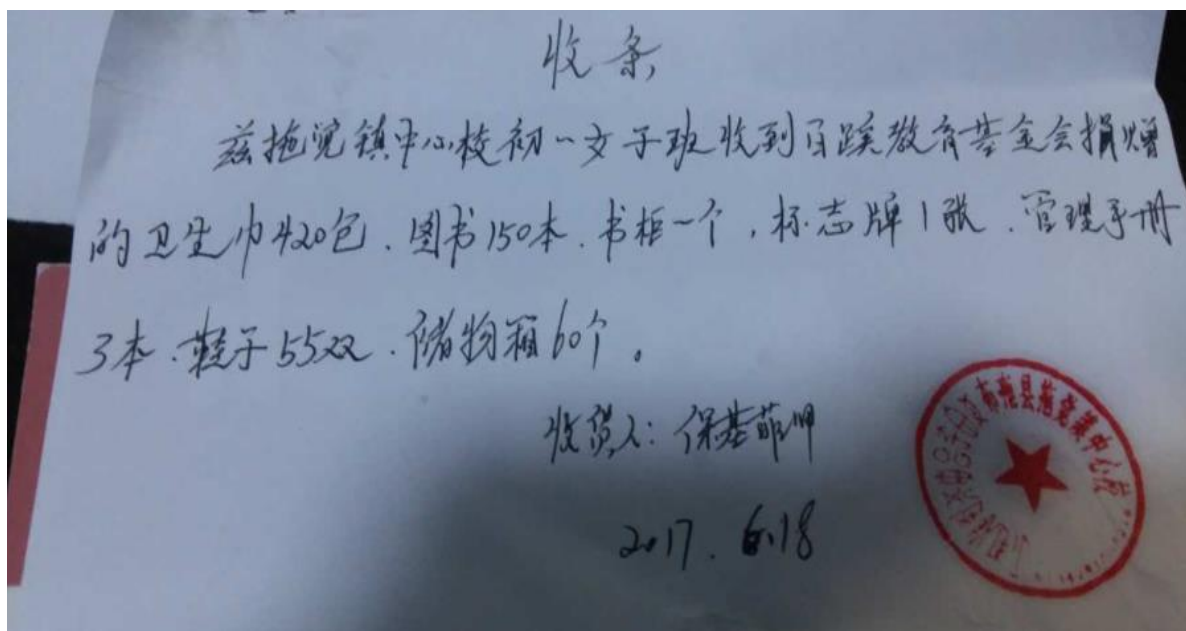 收条
兹拖觉镇中心校初一女子班收到百蹊教育基金会捐赠
的卫生巾420包、图书150本、书柜一个，标志牌1张、管理手册
3本、鞋子55双、储物箱60个。
收货人：保基菲呷
2017.6.18
布拖县拖觉镇中心校